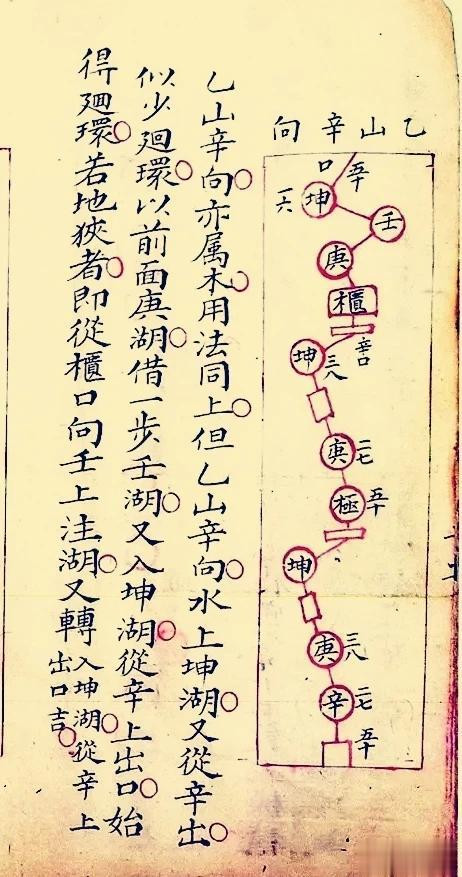 乙山辛向
五十
口
坤
一六
壬
庚
櫃
辛口
坤
三八
庚
二七
極
五十
坤
庚
三八
辛
二七
五十
乙山辛向○亦属木○用法同上○但乙山辛向○水上坤湖○又從辛出○
似少廻環○以前面庚湖○借一步壬湖○又入坤湖○從辛上出口○始
得廻環○若地狹者○即從櫃口向壬上注湖○又轉
入坤湖○從辛上
出口吉○